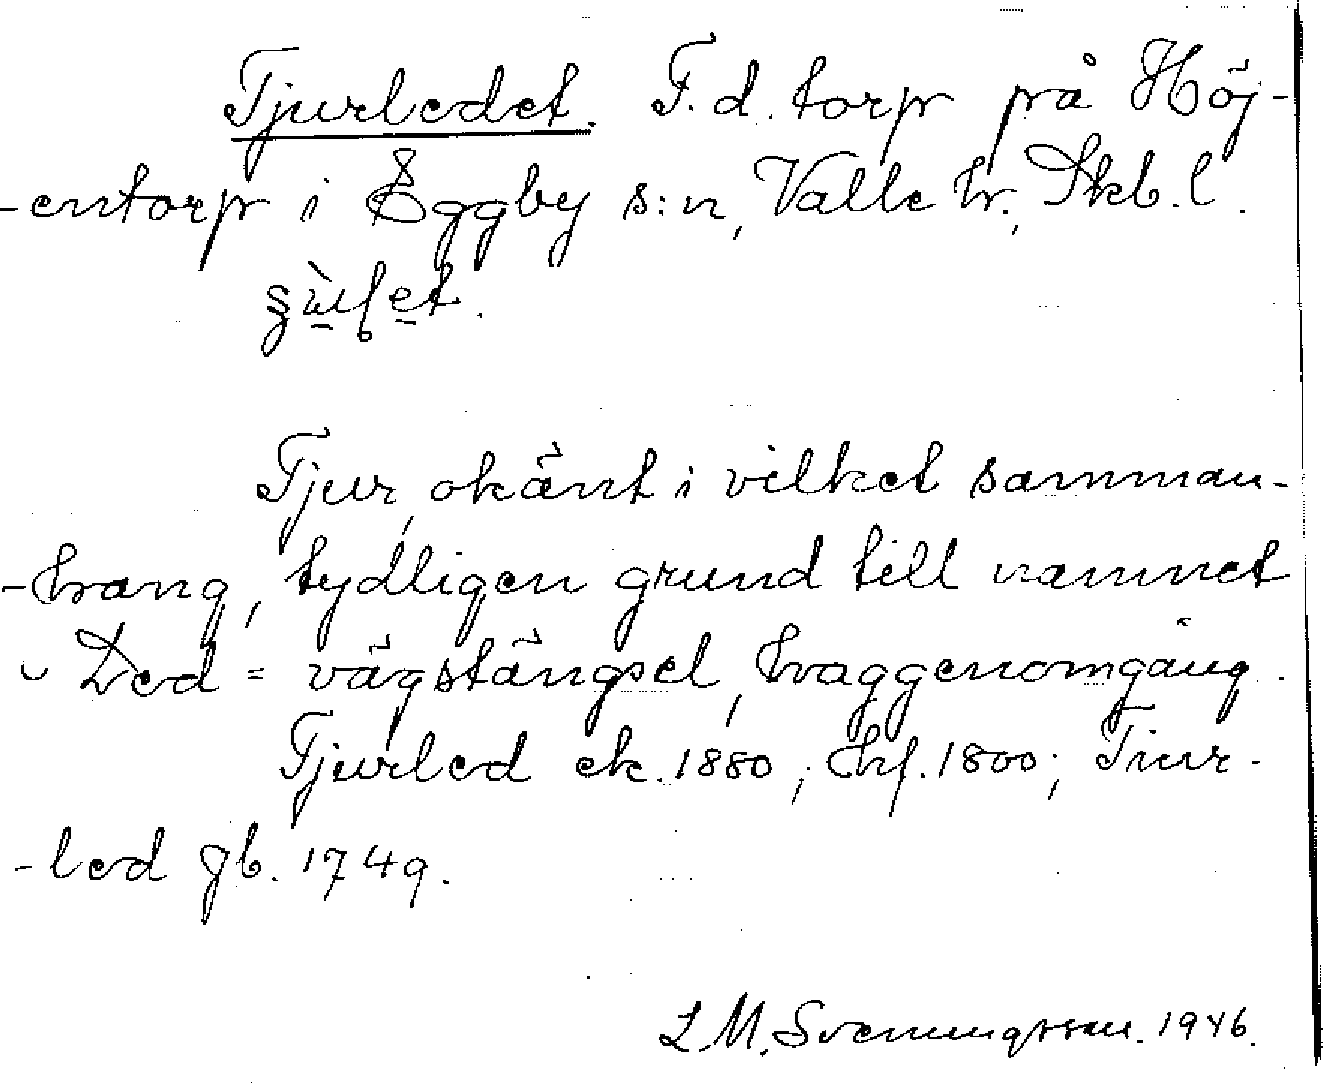 Tjurledet. F.d. torp på Höj-
-entorp i Eggby s:n, Valle hr., Skb. l.
Tjur, okänt i vilket samman-
-hang, tydligen grund till namnet
Led = vägstängsel, haggenomgång.
Tjurled ek. 1880; hf. 1800; Tiur-
-led gb. 1749.
L.M. Svenungsson. 1946.